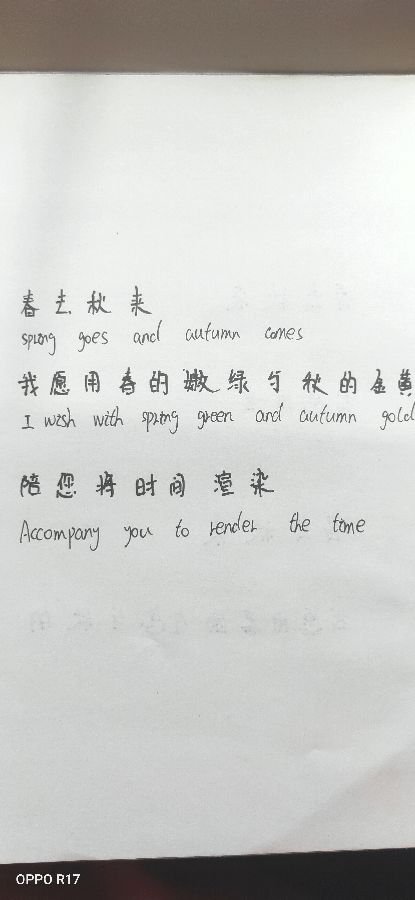 春去秋来
spring goes and autumn comes
我愿用春的嫩绿与秋的金黄
I wish with spring green and autumn gold
陪您将时间渲染
Accompany you to render the time
OPPO R17